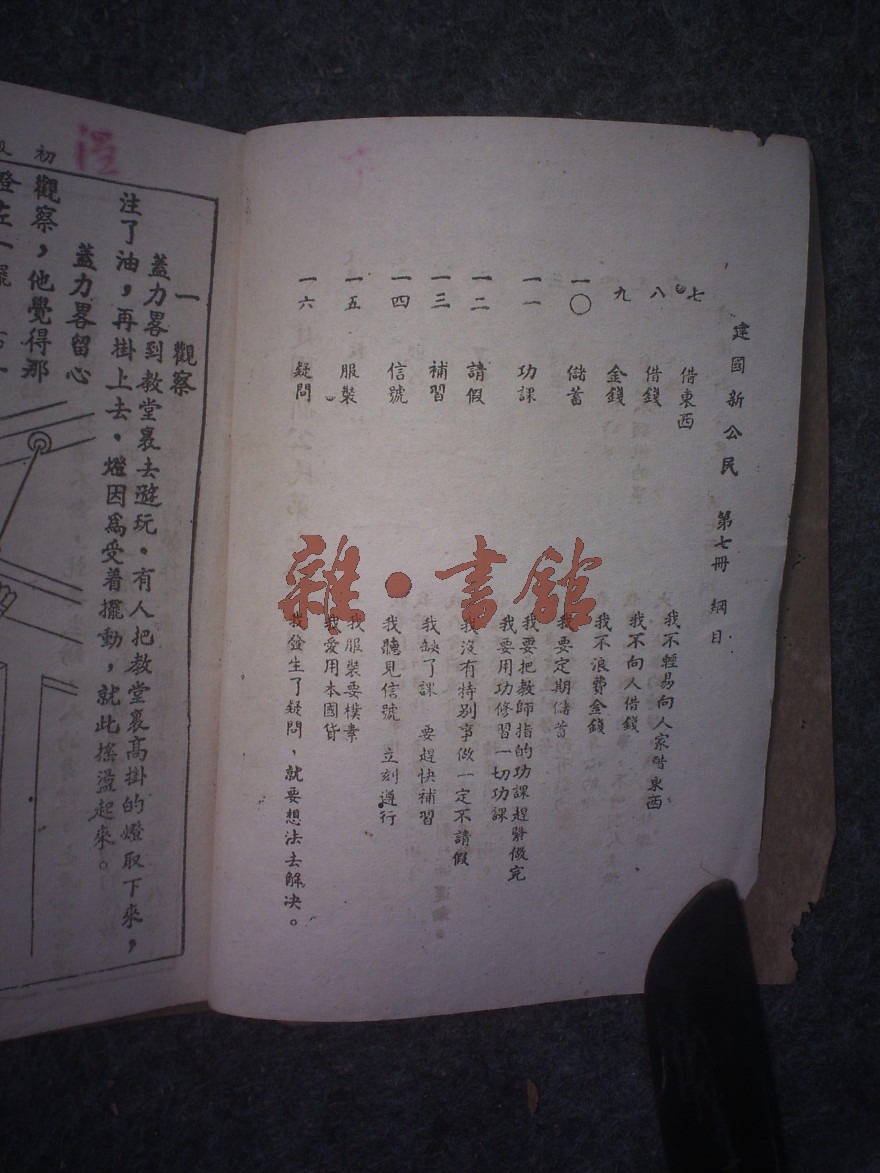 建國新公民 第七冊 綱目
七 借東西 我不輕易向人家借東西
八 借錢 我不向人借錢
九 金錢 我不浪費金錢
一〇 儲蓄 我要定期儲蓄
一一 功課 我要把教師指的功課趕緊做完
我要用功修習一切功課
一二 請假 我沒有特別事做一定不請假
一三 補習 我缺了課 要趕快補習
一四 信號 我聽見信號 立刻遵行
一五 服裝 我服裝要樸素
我愛用本國貨
一六 疑問 我發生了疑問，就要想法去解决。
雜·書館
初
一 觀察
蓋力畧到教堂裏去遊玩。有人把教堂裏高掛的燈取下來，
注了油，再掛上去。燈因爲受着擺動，就此搖盪起來。
蓋力畧留心
觀察，他覺得那